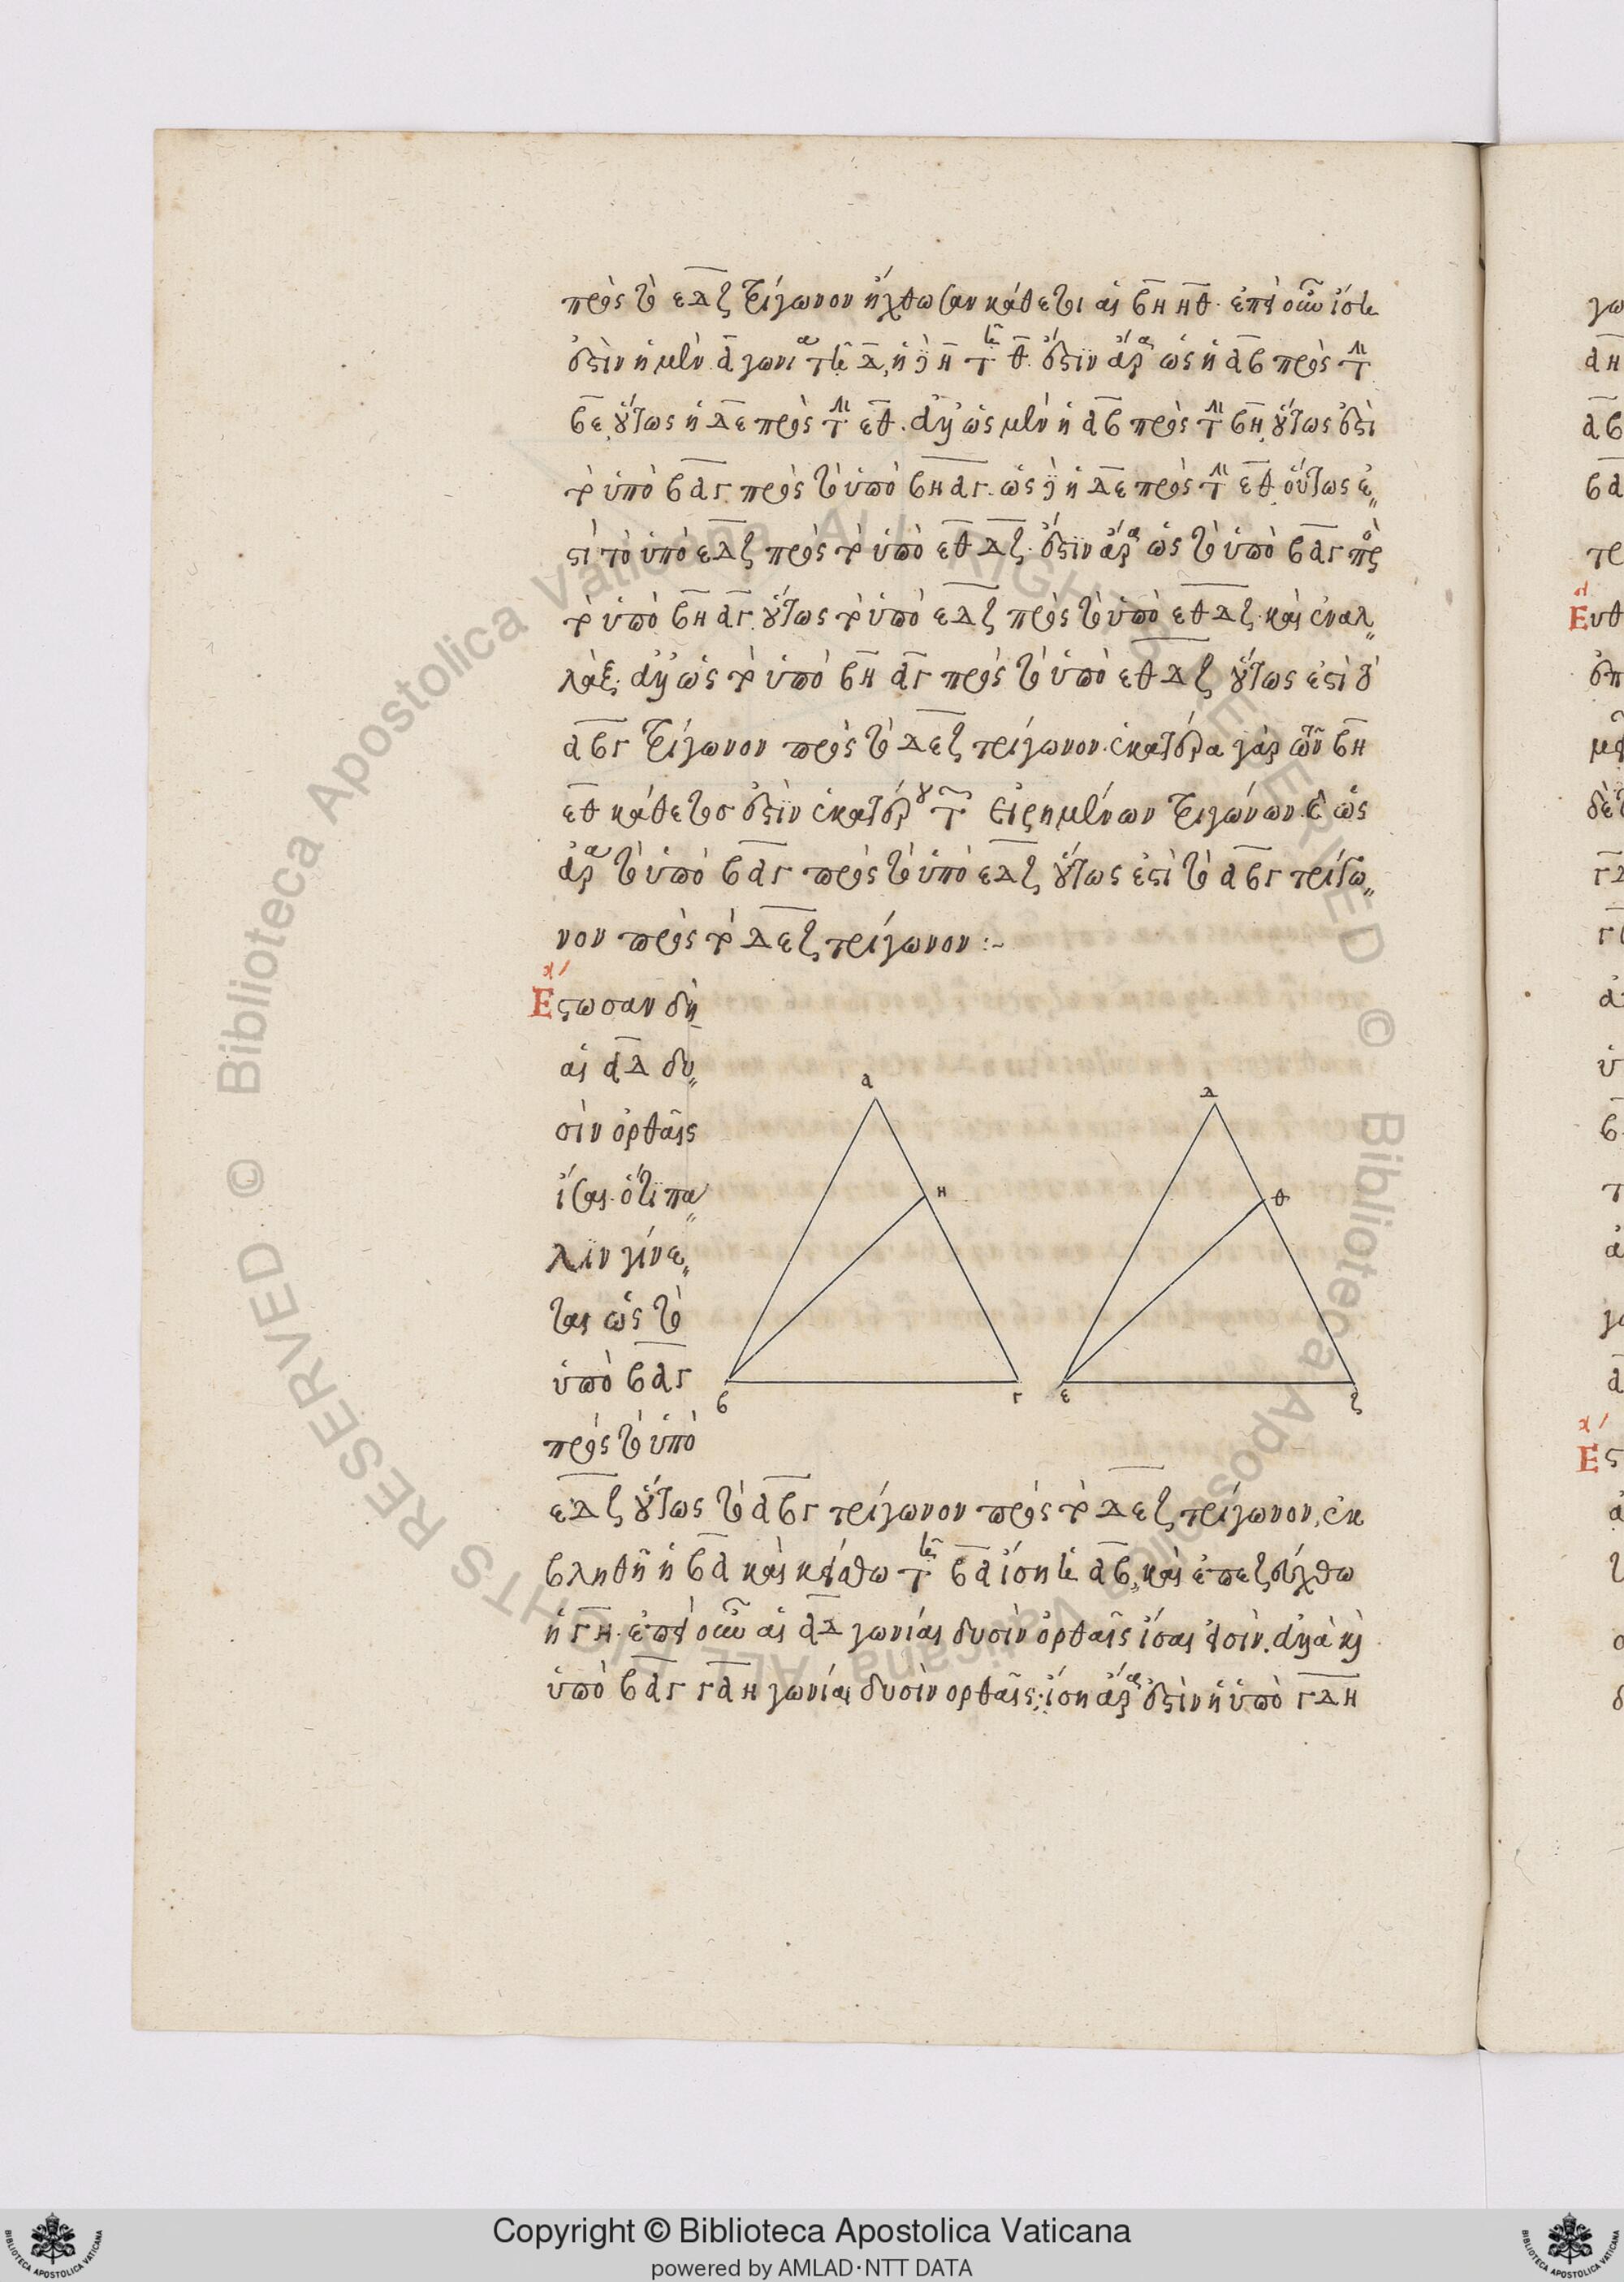 πρὸς τὸ εΔζ τρίγωνον ἤχθωσαν κάθετοι αἱ βη ηθ. ἐπεὶ οὖν ἴση
ἐστὶν ἡ μὲν α γωνία τῆ Δ, ἡ δὲ η τῆ θ. ἔστιν ἄρα ὡς ἡ αβ πρὸς τὴν
βε, οὕτως ἡ Δε πρὸς τὴν εθ. ἀλλ' ὡς μὲν ἡ αβ πρὸς τὴν βη, οὕτως ἐστὶ
τὸ ὑπὸ βαγ πρὸς τὸ ὑπὸ βη αγ. ὡς δὲ ἡ Δε πρὸς τὴν εθ, οὕτως ἐ„
στὶ τὸ ὑπὸ εΔζ πρὸς τὸ ὑπὸ εθ Δζ. ἔστιν ἄρα ὡς τὸ ὑπὸ βαγ πρὸς
τὸ ὑπὸ βη αγ, οὕτως τὸ ὑπὸ εΔζ πρὸς τὸ ὑπὸ εθ Δζ. καὶ ἐναλ„
λάξ. ἀλλ' ὡς τὸ ὑπὸ βη αγ πρὸς τὸ ὑπὸ εθ Δζ οὕτως ἐστὶ τὸ
αβγ τρίγωνον πρὸς τὸ Δεζ τρίγωνον. ἑκατέρα γὰρ τῶν βη
εθ κάθετος ἐστὶν ἑκατέρου τῶν εἰρημένων τριγώνων. καὶ ὡς
ἄρα τὸ ὑπὸ βαγ πρὸς τὸ ὑπὸ εΔζ οὕτως ἐστὶ τὸ αβγ τρίγω„
νον πρὸς τὸ Δεζ τρίγωνον :~
Ἔστωσαν δὴ
αἱ αΔ δυ„
σὶν ὀρθαῖς
ἴσαι. ὅτι πά„
λιν γίνε„
ται ὡς τὸ
ὑπὸ βαγ
πρὸς τὸ ὑπὸ
α
Δ
η
θ
β
γ
ε
ζ
εΔζ οὕτως τὸ αβγ τρίγωνον πρὸς τὸ Δεζ τρίγωνον, ἐκ
βληθῆ ἡ βα καὶ κείσθω τῆ βα ἴση ἡ αβ, καὶ ἐπεζεύχθω
ἡ γη. ἐπεὶ οὖν αἱ αΔ γωνίαι δυσὶν ὀρθαῖς ἴσαι εἰσὶν. ἀλλὰ καὶ
ὑπὸ βαγ γαη γωνίαι δυσὶν ορθαῖς. ἴση ἄρα ἐστὶν ἡ ὑπὸ γΔη